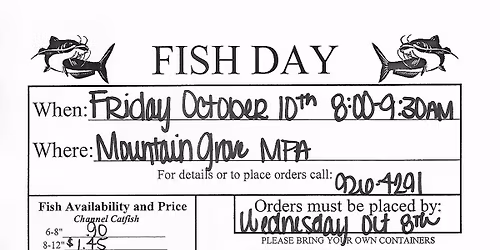 FISH DAY
When: Friday October 10th 8:00-9:30AM
Where: Mountain Grove MFA
For details or to place orders call:
926-4291
Fish Availability and Price
Channel Catfish
6-8" 90
8-12" $1.45
Orders must be placed by:
Wednesday Oct 8th
PLEASE BRING YOUR OWN CONTAINERS